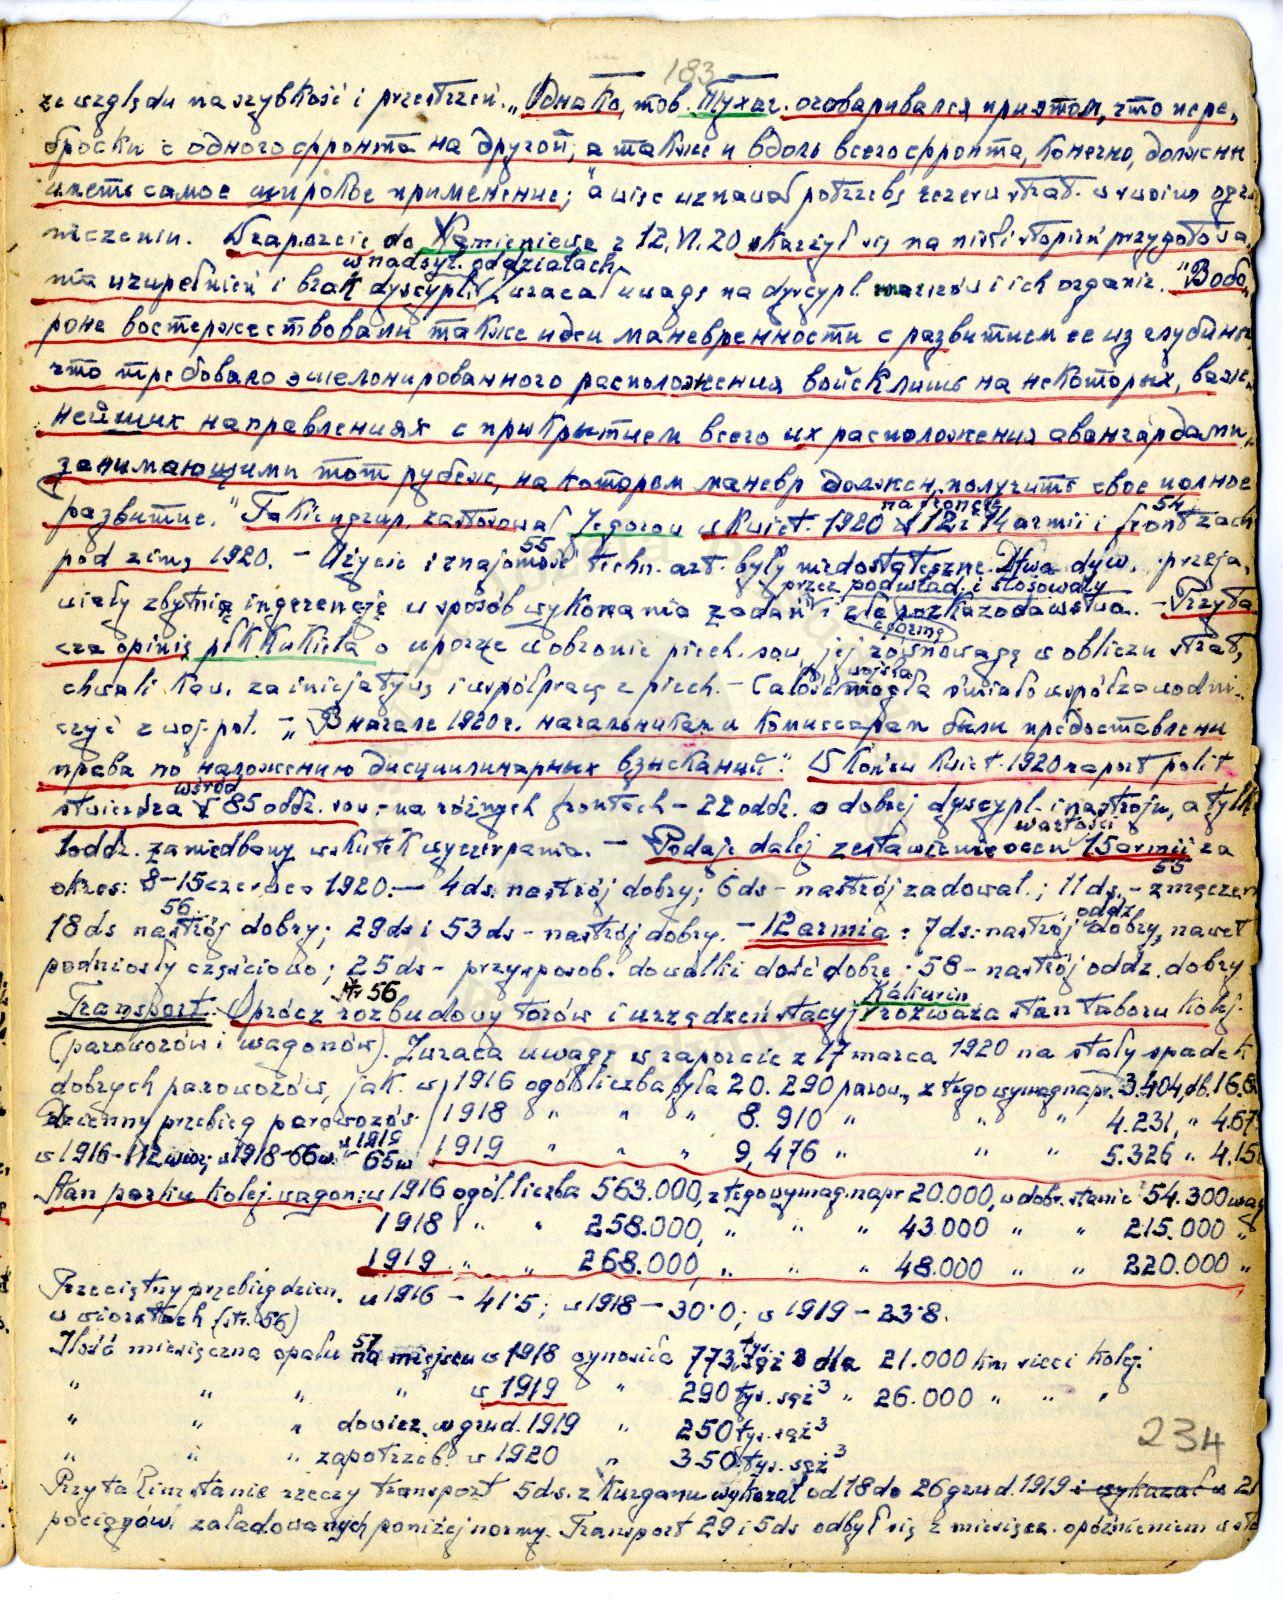 183
ze względu na szybkość i przestrzeń. „Однако, тов. Тухач. оговаривался при этом, что пере-
броски с одного фронта на другой, а также и вдоль всего фронта, конечно, должны
иметь самое широкое применение;" a więc uznawał potrzebę rezerw strat. w swoim ogra
niczeniu. W raporcie do Kamieniewa z 12.VI.20 skarżył się na niski stopień przygotowa-
nia uzupełnień i brak dyscypl. w nadsył. oddziałach, zwracał uwagę na dyscypl. marszów i ich organiz. "В обо-
роне восторжествовали также идеи маневренности с развитием ее из глубины
что требовало эшелонированного расположения войск лишь на некоторых, важ-
нейших направлениях с прикрытием всего их расположения авангардами,
занимающими тот рубеж, на котором маневр должен получить свое полное
развитие." Takie ugrup. zastosował Jegorow w kwiet. 1920 na froncie 12 i 14 armii i front zach 54
pod zimę 1920. – Użycie i znajomość 55 techn. art. były niedostateczne. D-twa dyw. przeja-
wiały zbytnią ingerencję w sposób wykonania zadań przez podwład. i stosowały złą formę rozkazodawstwa. – Przyta
cza opinię płk Kukiela o uporze w obronie piech. sow, jej równowagę w obliczu strat,
chwali kaw. za inicjatywę i współpracę z piech. – Całość wojska mogła śmiało współzawodni-
czyć z woj. pol. – „В начале 1920 г. начальникам и комиссарам были предоставлены
права по наложению дисциплинарных взысканий". W końcu kwiet. 1920 raport polit
stwierdza wśród 85 oddz. sow. – na różnych frontach – 22 oddz. o dobrej dyscypl. i nastroju, a tylko
1 oddz. zaniedbany wskutek wyczerpania. – Podaje dalej zestawienie ocen wartości 15 armii za
okres: 8–15 czerwca 1920. – 4 ds. nastrój dobry; 6 ds – nastrój zadowal.; 11 ds. 55 – zmęczen
18 ds 56 nastrój dobry; 29 ds i 53 ds – nastrój dobry. – 12 armia: 7 ds. – nastrój oddz. dobry, nawet
podniosły częściowo; 25 ds – przysposob. do walki dość dobre; 58 – nastrój oddz. dobry
Transport. str 56 Oprócz rozbudowy torów i urządzeń stacyj Kakurin rozważa stan taboru kolej.
(parowozów i wagonów). Zwraca uwagę w raporcie z 17 marca 1920 na stały spadek
dobrych parowozów, jak. w 1916 ogól. liczba była 20.290 parow., z tego wymag. napr. 3.404, db. 16.8
dzienny przebieg parowozów 1918 " " " 8.910 " " " 4.231, " 4.67
w 1916 – 112 wior; w 1918 – 66 w. w 1919 – 65 w 1919 " " " 9,476 " " " 5.326 " 4.15
Stan parku kolej. wagon: w 1916 ogól. liczba 563.000, z tego wymag. napr 20.000, w dobr. stanie 54.300 wag
1918 " " 258.000, " " " 43.000 " " 215.000 "
1919 " " 268.000, " " " 48.000 " " 220.000 "
Przeciętny przebieg dzien. w 1916 – 41.5; w 1918 – 30.0; w 1919 – 23.8.
w wiorstach (str. 56)
Ilość miesięczna opału 57 na miejscu w 1918 wynosiła 773 tys. sąż 3 dla 21.000 km sieci kolej.
" " " " w 1919 " 290 tys. sąż 3 " 26.000 " " "
" " " dowiez. w grud. 1919 " 250 tys. sąż 3
" " " zapotrzeb. w 1920 " 350 tys. sąż 3
234
Przy takim stanie rzeczy transport 5 ds. z Kurganu wykazał od 18 do 26 grud. 1919 i wykazał w 21
pociągów, załadowanych poniżej normy. Transport 29 i 5 ds odbył się z miesięcz. opóźnieniem w sto